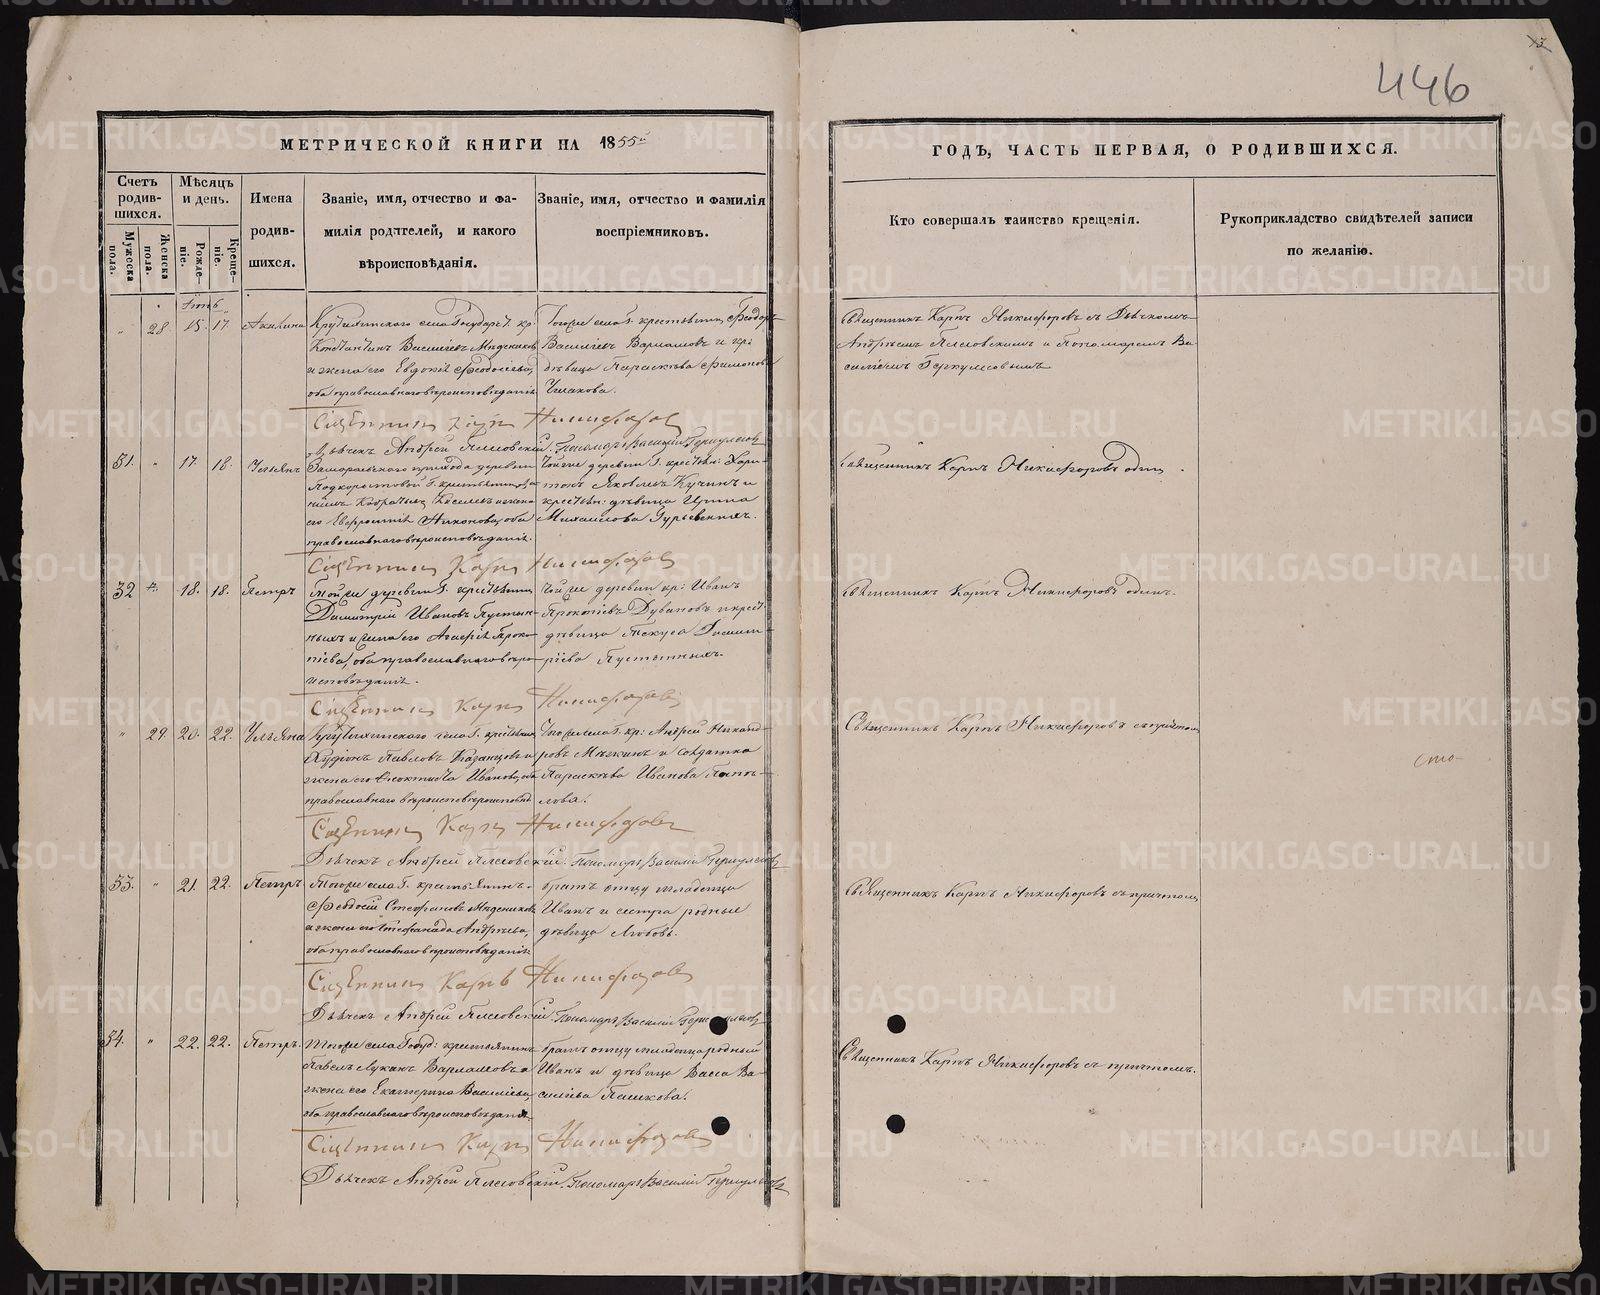 446
МЕТРИЧЕСКОЙ КНИГИ НА 1855й
ГОДЪ, ЧАСТЬ ПЕРВАЯ, О РОДИВШИХСЯ.
Счетъ родив-шихся.
Мужеска пола.
Женска пола.
Мѣсяцъ и день.
Рожде-ніе.
Креще-ніе.
Имена
родив-
шихся.
Званіе, имя, отчество и фа-
милія родителей, и какого
вѣроисповѣданія.
Званіе, имя, отчество и фамилія
воспріемниковъ.
Кто совершалъ таинство крещенія.
Рукоприкладство свидѣтелей записи
по желанію.
" 28. 15. 17. Акилина
села Государст. кр.
Константинъ Васильевъ
и жена его Евдокія Феодосіева,
оба православнаго вѣроисповѣданія
Тогоже села г. крестьянинъ Феодоръ
Васильевъ Варлаамовъ и кр:
дѣвица Параскева Филимонова
Чижакова.
Священникъ Карпъ Никифоровъ съ Дьячкомъ
Андреемъ Плесовскимъ и Пономаремъ Ва
силіемъ Геркулесовымъ
Священникъ Карпъ Никифоровъ
Дьячекъ Андрей Плесовскій. Пономарь Василій Геркулесовъ
" 17. 18.
прихода деревни
г. крестьянинъ
его Евфросинія Никонова, оба
православнаго вѣроисповѣданія.
Тойже деревни г. крестьян: Хари-
тонъ Яковлевъ Кучинъ и
крестьян: дѣвица Ирина
Михайлова Гурьевскихъ.
Священникъ Карпъ Никифоровъ одинъ.
Священникъ Карпъ Никифоровъ
32 " 18. 18. Петръ
Тойже деревни г. крестьянинъ
Димитрій Ивановъ Пустын-
ныхъ и жена его Агафія Проко-
піева, оба православнаго вѣро-
исповѣданія.
Тойже деревни кр: Иванъ
Прокопіевъ Дувановъ и крест.
дѣвица Текуса Димит-
ріева Пустынныхъ.
Священникъ Карпъ Никифоровъ одинъ.
Священникъ Карпъ Никифоровъ
" 29. 20. 22. Ульяна
села г. крестьянинъ
Павловъ Казанцовъ и
жена его Феоктиста Иванова, оба
православнаго
Тогоже села г. кр: Андрей Никанд-
ровъ и солдатка
Параскева Иванова Попо-
лова.
Священникъ Карпъ Никифоровъ съ причтом
Священникъ Карпъ Никифоровъ
Дьячекъ Андрей Плесовскій. Пономарь Василій Геркулесовъ
33. " 21. 22. Петръ
Тогоже села г. крестьянинъ
Феодосій Стефановъ
и жена его Степанида Андреева,
оба православнаго вѣроисповѣданія.
братъ отцу младенца
Иванъ и сестра родные
дѣвица Любовь.
Священникъ Карпъ Никифоровъ съ причтомъ
Священникъ Карпъ Никифоровъ
Дьячекъ Андрей Плесовскій. Пономарь Василій Геркулесовъ
34. " 22. 22. Петръ.
Тогоже села Госуд: крестьянинъ
Павелъ Лукинъ Варлаамовъ и
жена его Екатерина Васильева,
оба православнаго вѣроисповѣданія.
братъ отцу младенца родный
Иванъ и дѣвица Васса Ва-
сильева Пашкова.
Священникъ Карпъ Никифоровъ съ причтомъ.
Священникъ Карпъ Никифоровъ
Дьячекъ Андрей Плесовскій. Пономарь Василій Геркулесовъ
METRIKI.GASO-URAL.RU